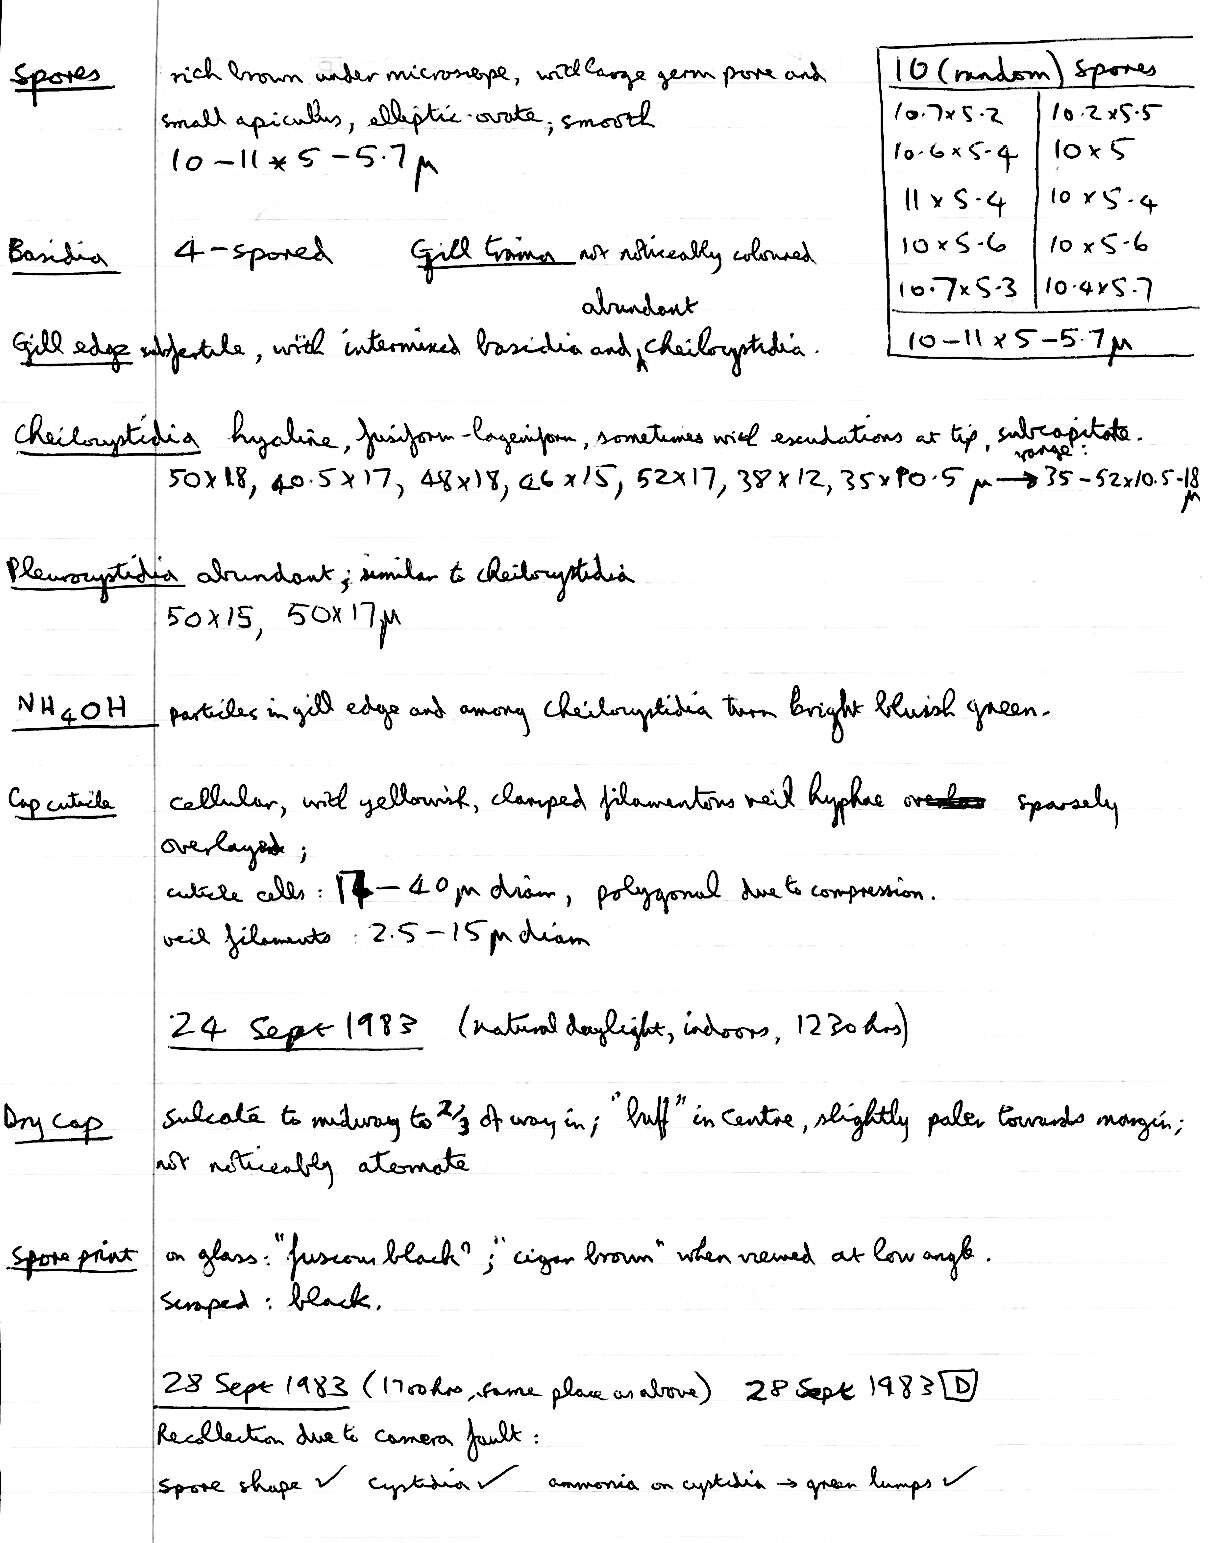 Spores rich brown under microscope, with large germ pore and
small apiculus, elliptic-ovate; smooth
10-11 x 5-5.7 µ
10 (random) spores
10.7 x 5.2 10.2 x 5.5
10.6 x 5.4 10 x 5
11 x 5.4 10 x 5.4
10 x 5.6 10 x 5.6
10.7 x 5.3 10.4 x 5.7
10-11 x 5-5.7 µ
Basidia 4-spored Gill trama not noticeably coloured
abundant
Gill edge subfertile, with intermixed basidia and ^ cheilocystidia.
Cheilocystidia hyaline, fusiform-lageniform, sometimes with exudations at tip, subcapitate.
range:
50x18, 40.5x17, 48x18, 46x15, 52x17, 38x12, 35x10.5 µ → 35-52x10.5-18
µ
Pleurocystidia abundant; similar to cheilocystidia
50x15, 50x17 µ
NH4OH particles in gill edge and among cheilocystidia turn bright bluish green.
Cap cuticle cellular, with yellowish, clamped filamentous veil hyphae sparsely
overlayed;
cuticle cells: 14-40 µ diam, polygonal due to compression.
veil filaments: 2.5-15 µ diam
24 Sept 1983 (natural daylight, indoors, 1230 hrs)
Dry cap sulcate to midway to 2/3 of way in; "buff" in centre, slightly paler towards margin;
not noticeably atomate
Spore print on glass: "fuscous black"; "cigar brown" when viewed at low angle.
Scraped: black.
28 Sept 1983 (1700 hrs, same place as above) 28 Sept 1983 D
Recollection due to camera fault:
spore shape ✓ cystidia ✓ ammonia on cystidia → green lumps ✓